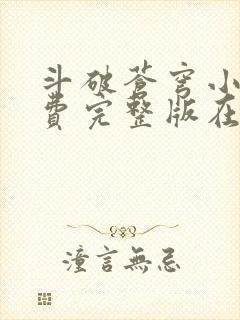 斗破苍穹小
费完整版在
潼言無忌